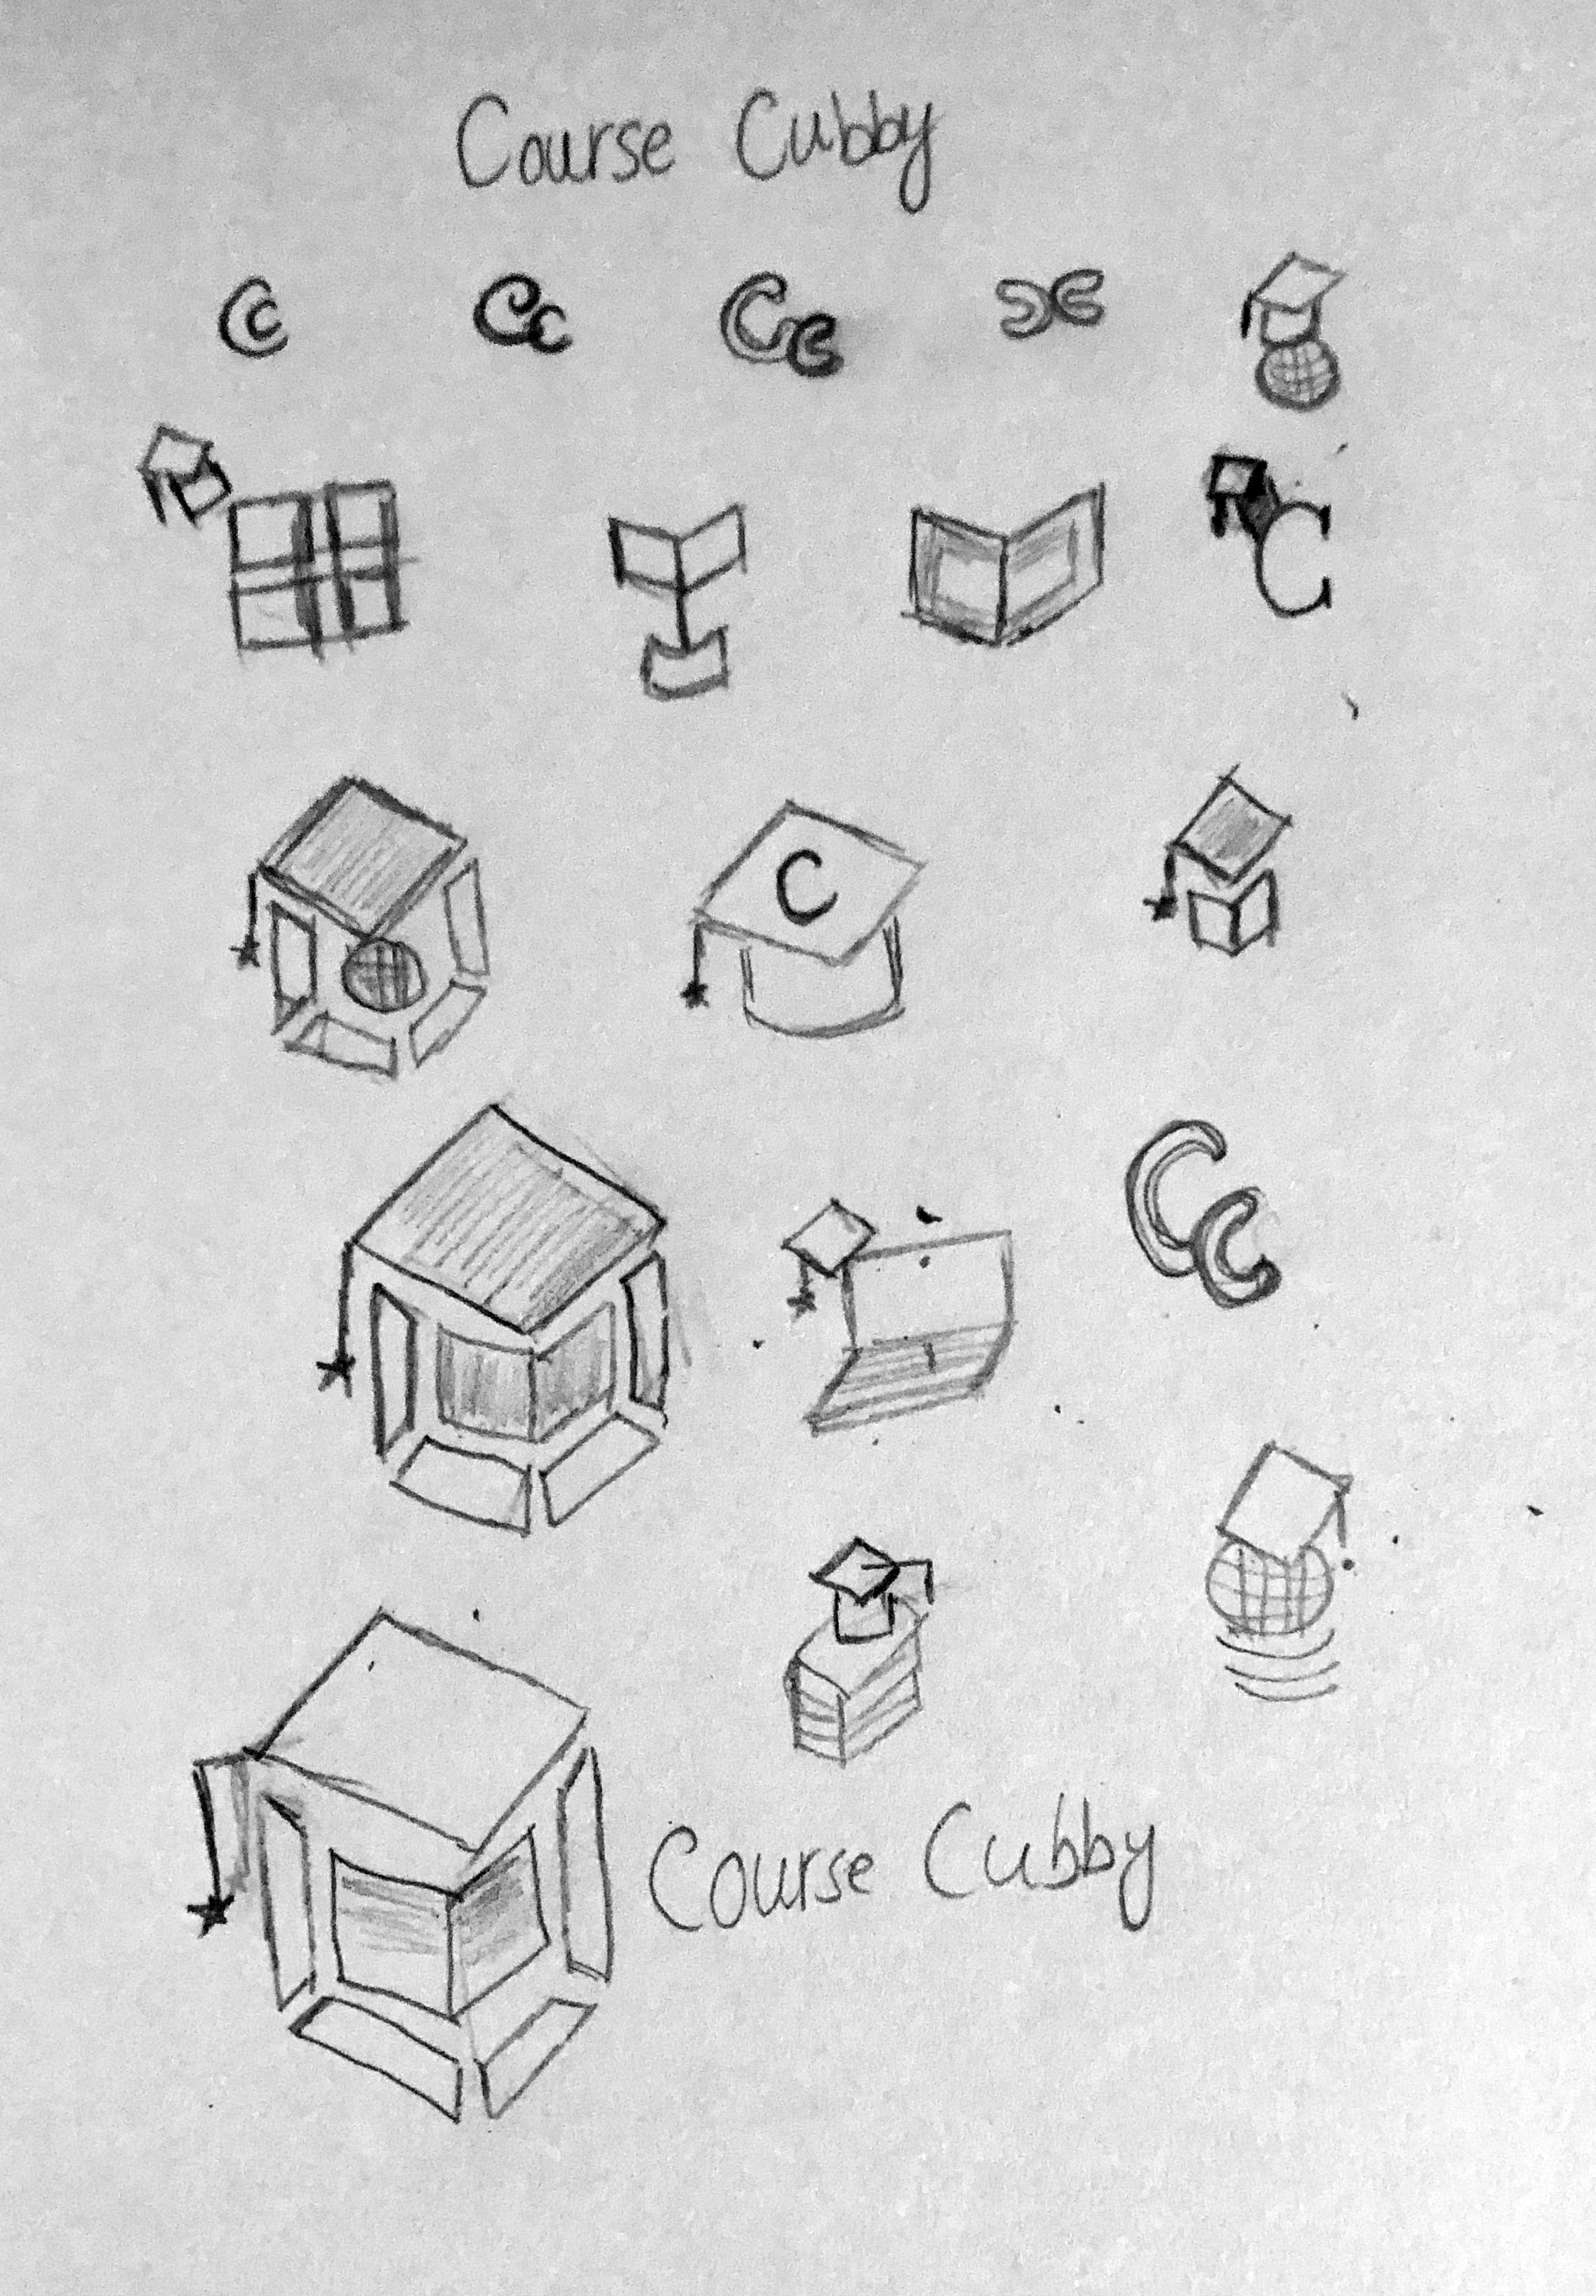 Course Cubby
Cc Cc Cc
C
C
Cc
Course Cubby